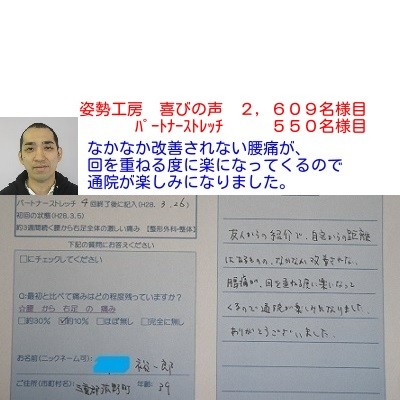 姿勢工房　喜びの声　２，６０９名様目
ﾊﾟｰﾄﾅｰｽﾄﾚｯﾁ　５５０名様目
なかなか改善されない腰痛が、
回を重ねる度に楽になってくるので
通院が楽しみになりました。
パートナーストレッチ 4回終了後に記入(H28. 3. 26)
初回の状態(H28.3.5)
約3週間続く腰から右足全体の激しい痛み 【整形外科・整体】
下記の質問にお答えください
□にチェックしてください
Q:最初と比べて痛みはどの程度残っていますか?
☆腰 から 右足 の 痛み
□約30% ☑約10% □ほぼ無し □完全に無し
お名前(ニックネーム可): 裕一郎
ご住所(市町村名): 郡 野町 年齢: 39
友人からの紹介で、自宅からの距離
はあるものの、なかなか改善されない
腰痛が、回を重ねる度に楽になって
くるので通院が楽しみになりました。
ありがとうございました。